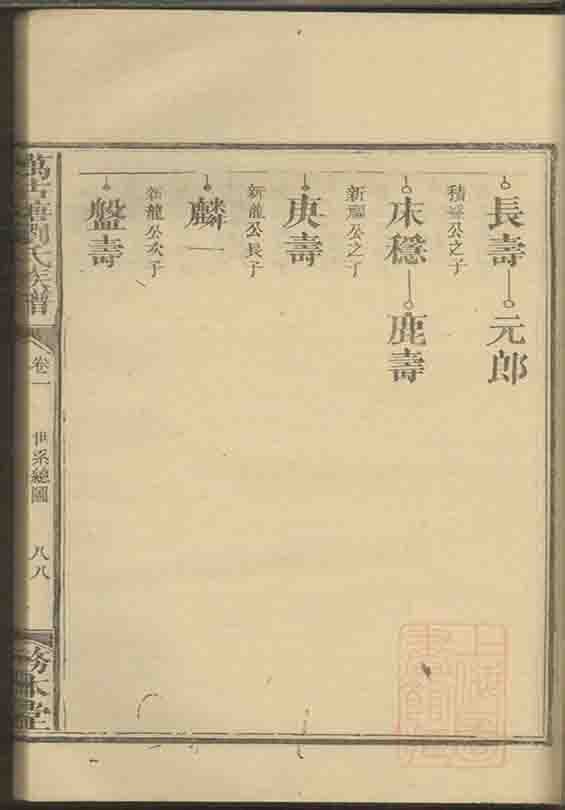 長壽 元郎
積善公之子
床穩 鹿壽
新耀公之子
庚壽
新龍公長子
麟一
新龍公次子
盤壽
劉氏族譜
卷一
世系總圖
八八
務本堂